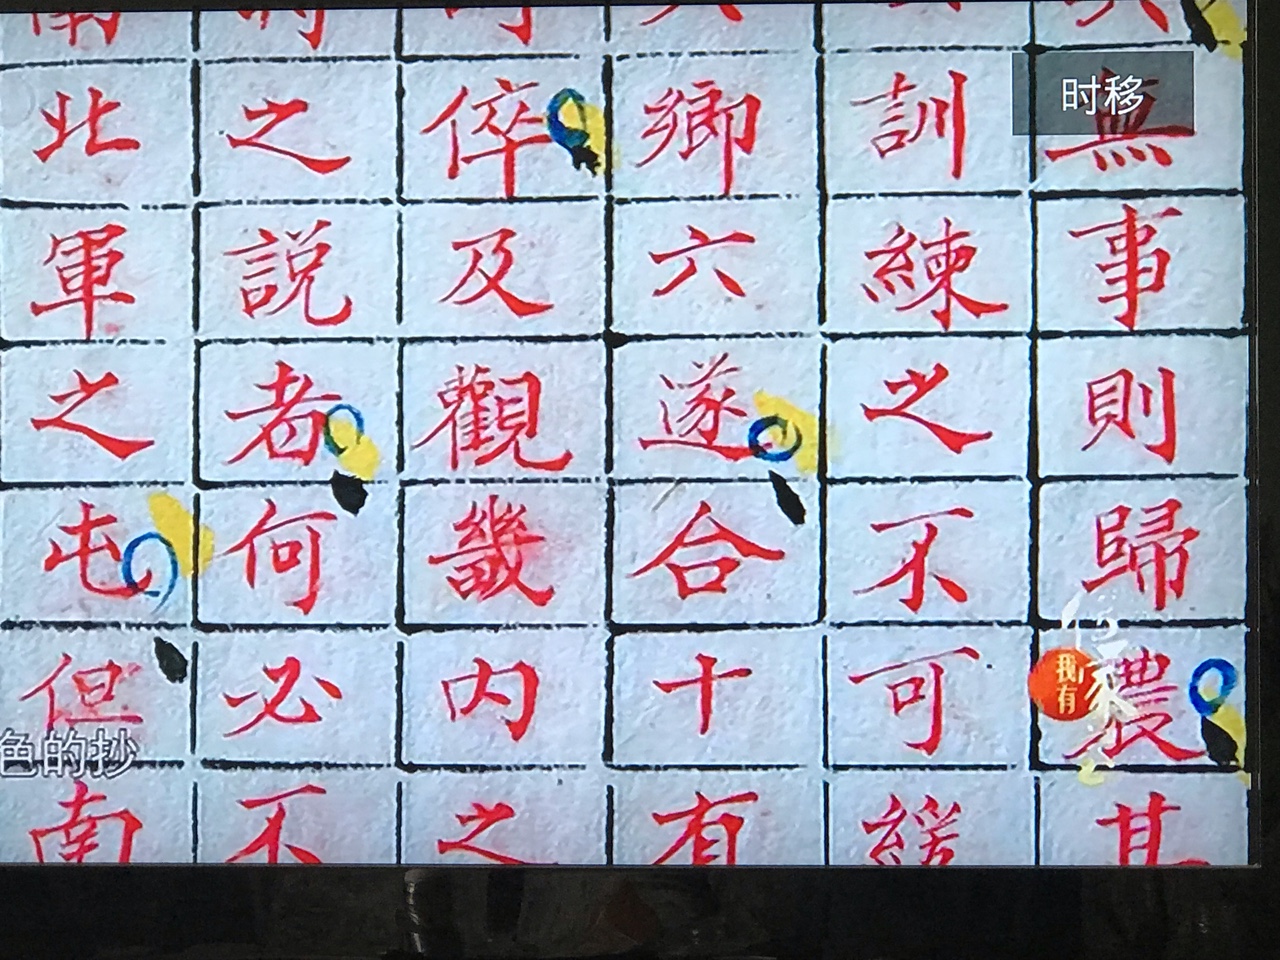 無事則歸農其
訓練之不可緩
鄉六遂合十有
倅及觀畿内之
之説者何必不
南北軍之屯但南
时移
我有
色的抄